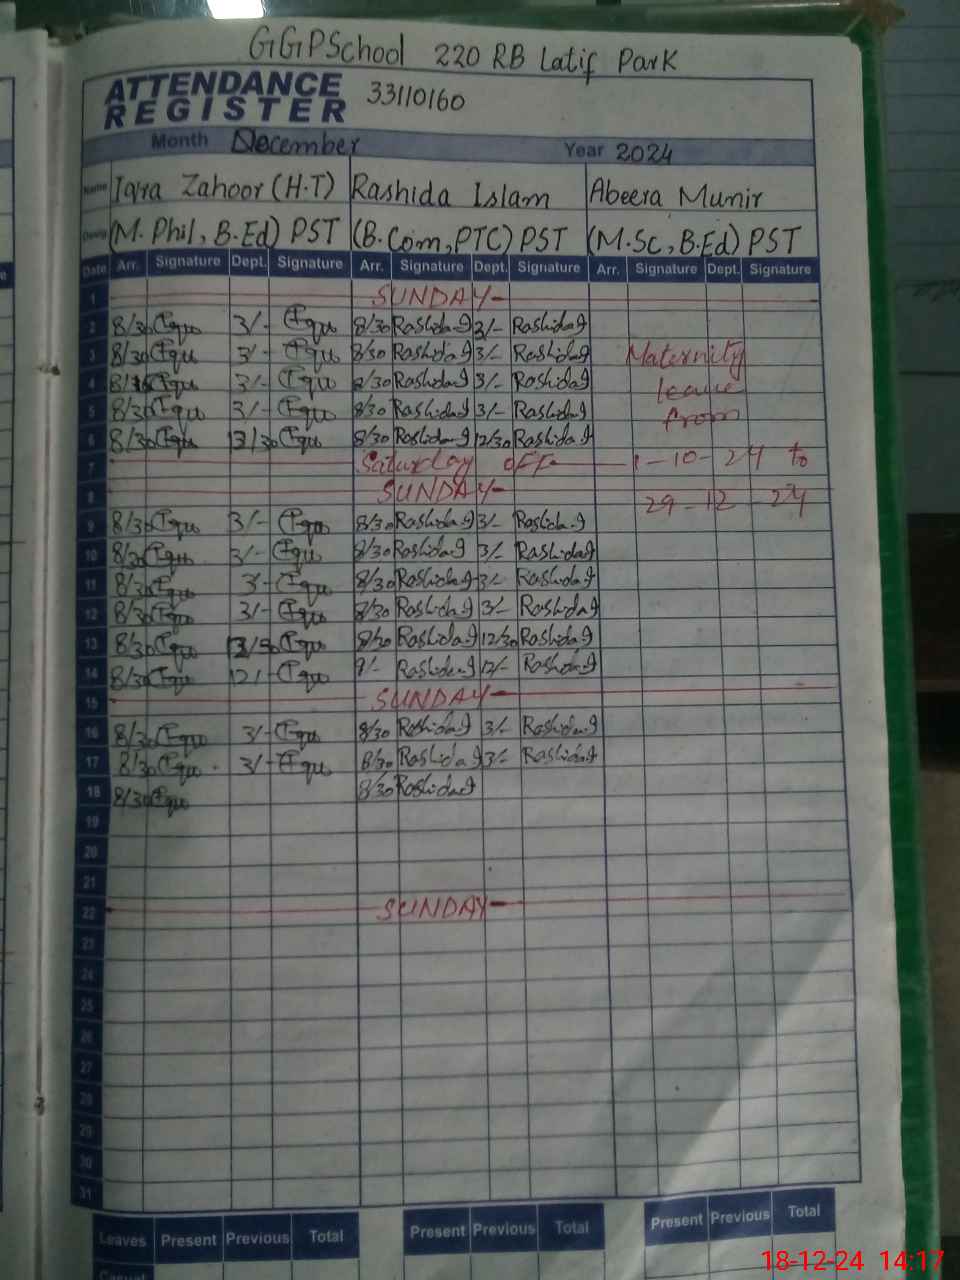 GGPSchool 220 RB Latif Park
ATTENDANCE
REGISTER 33110160
Month December Year 2024
Name Iqra Zahoor (H.T) Rashida Islam Abeera Munir
(M. Phil, B.Ed) PST (B.Com, PTC) PST (M.Sc, B.Ed) PST
Date Arr. Signature Dept. Signature Arr. Signature Dept. Signature Arr. Signature Dept. Signature
1 SUNDAY
2 8/30 Iqra 3/- Iqra 8/30 Rashida I 3/- Rashida I
3 8/30 Iqra 3/- Iqra 8/30 Rashida I 3/- Rashida I Maternity
4 Iqra 3/- Iqra 8/30 Rashida I 3/- Rashida I leave
5 8/30 Iqra 3/- Iqra 8/30 Rashida I 3/- Rashida I from
6 8/30 Iqra Iqra 8/30 Rashida I 12/30 Rashida I
7 Saturday off 1-10-24 to
8 SUNDAY 29-12-24
9 8/30 Iqra 3/- Iqra 8/30 Rashida I 3/- Rashida I
10 8/30 Iqra 3/- Iqra 8/30 Rashida I 3/- Rashida I
11 8/30 Iqra 3/- Iqra 8/30 Rashida I 3/- Rashida I
12 8/30 Iqra 3/- Iqra 8/30 Rashida I 3/- Rashida I
13 8/30 Iqra Iqra 8/30 Rashida I 12/30 Rashida I
14 8/30 Iqra 12/- Iqra Rashida I 12/- Rashida I
15 SUNDAY
16 8/30 Iqra 3/- Iqra 8/30 Rashida I 3/- Rashida I
17 8/30 Iqra 3/- Iqra 8/30 Rashida I 3/- Rashida I
18 8/30 Iqra 8/30 Rashida I
19
20
21
22 SUNDAY
23
24
25
26
27
28
29
30
31
Leaves Present Previous Total Present Previous Total Present Previous Total
18-12-24 14:17